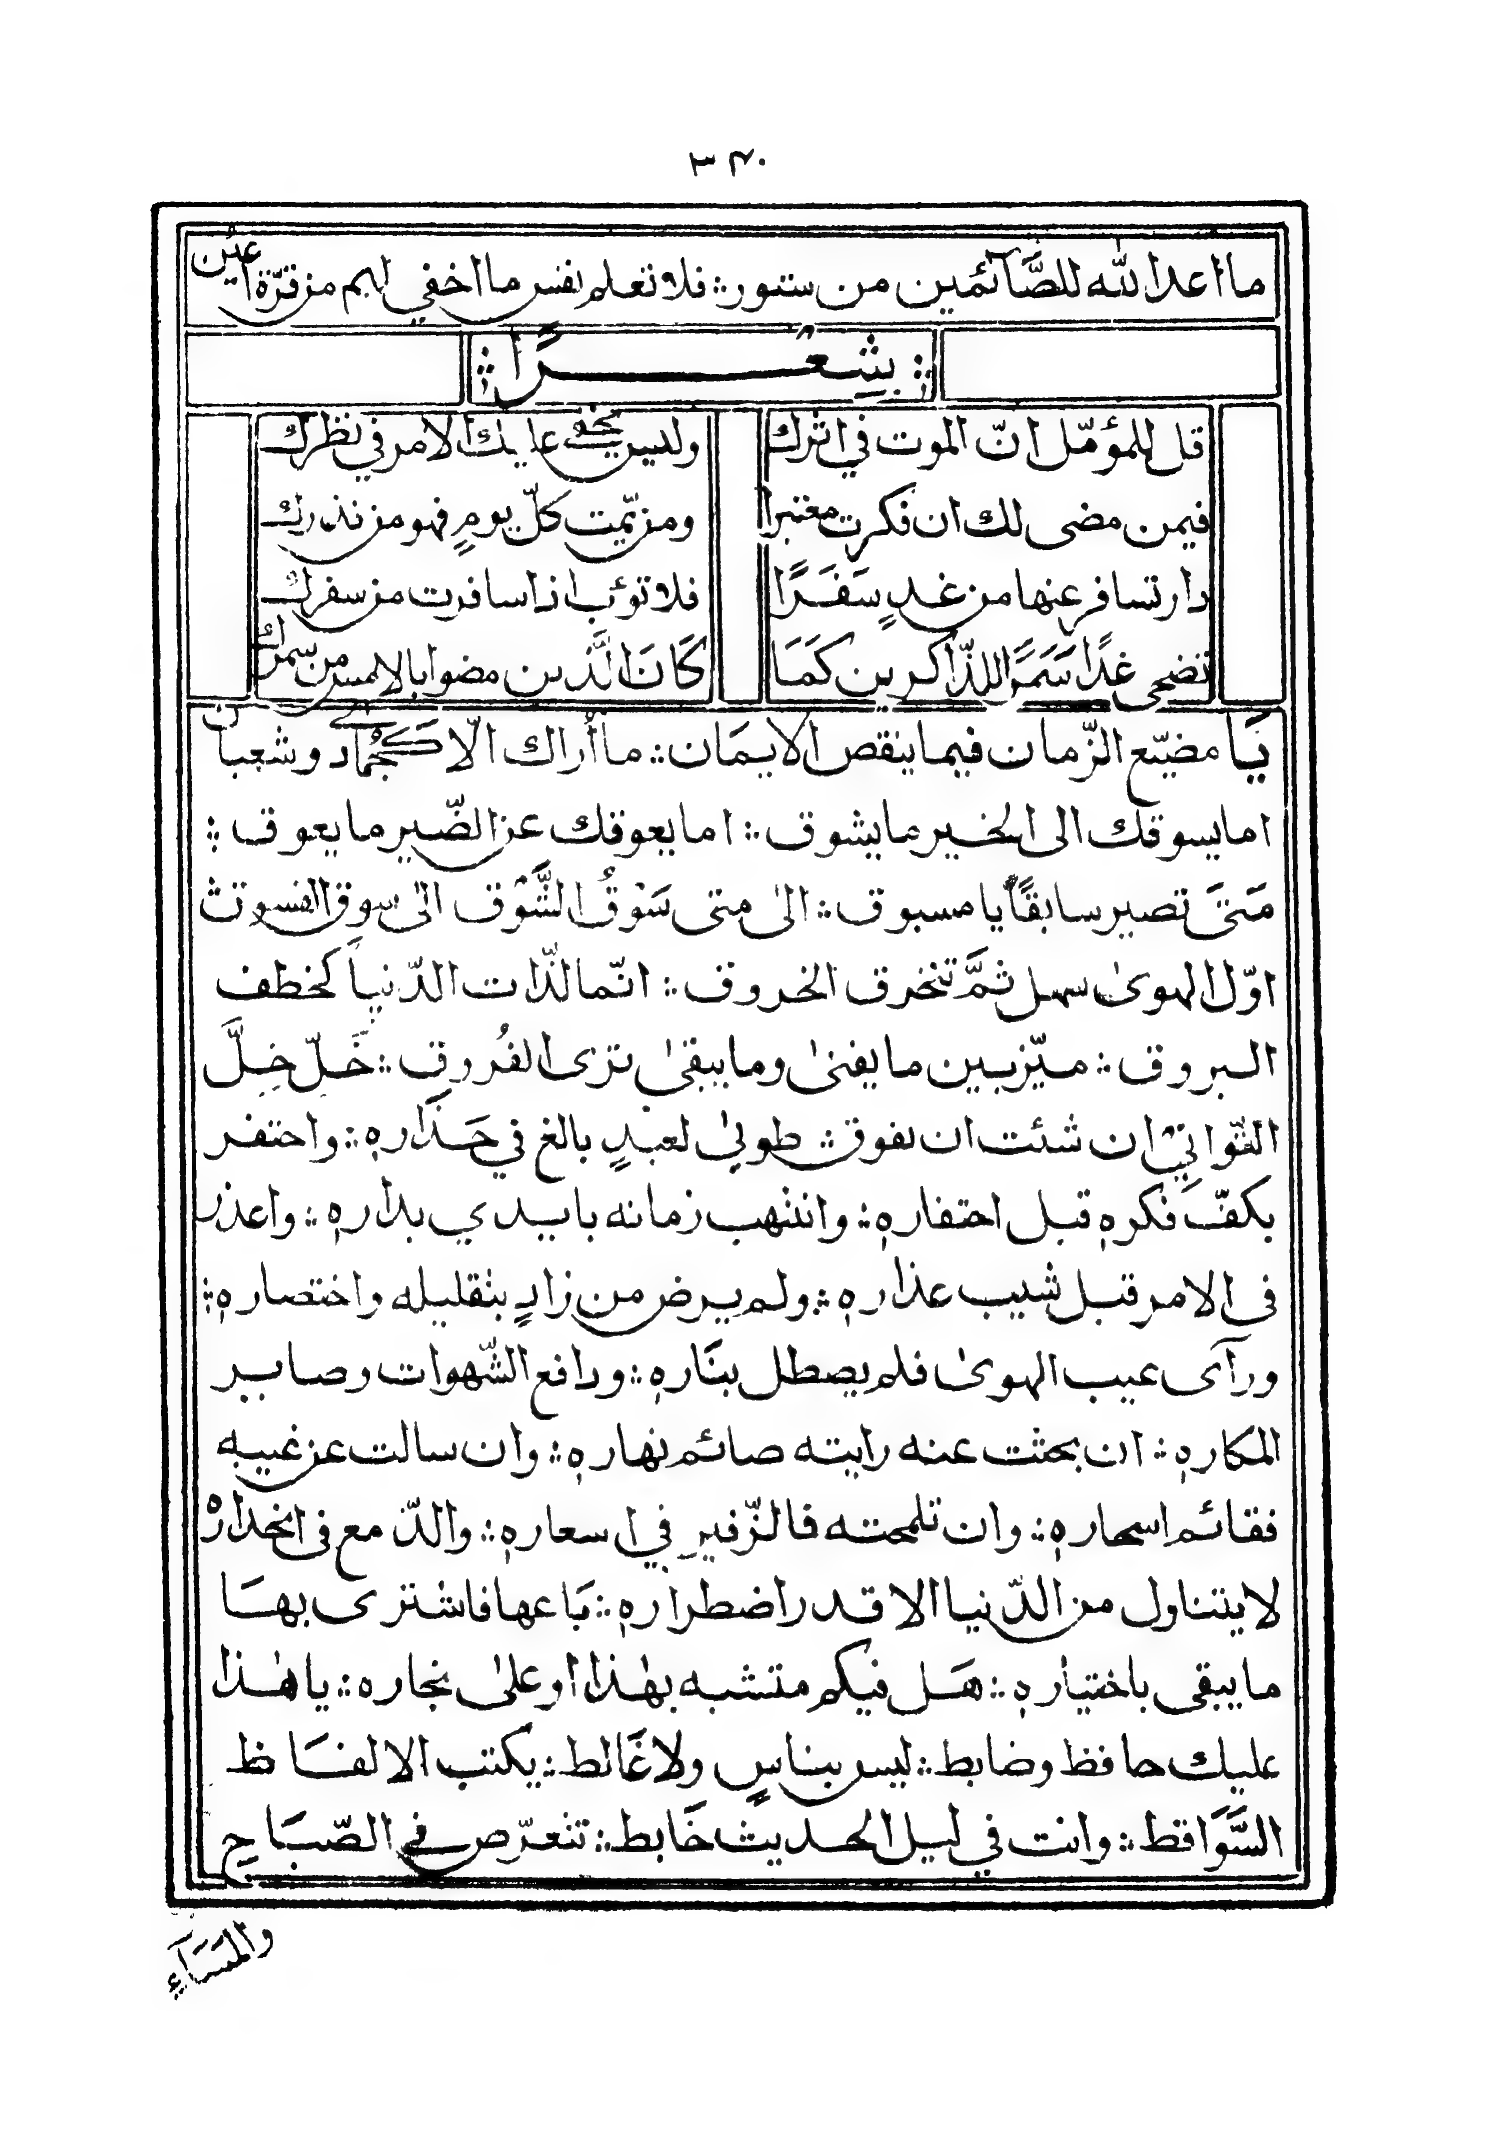 ٣۴٠
ما اعد الله للصَّآئمين من ستور ؞ فلا تعلم نفس ما اخفي لهم من قرّة اعين
شِعْرًا
قل للمؤمّل انّ الموت في اثرك وليس يخفى عليك الامر في نظرك
فيمن مضى لك ان فكرت معتبرا ومن يّمت كلّ يومٍ فهو من نذرك
دار تسافر عنها من غدٍ سَفَرًا فلا تؤب اذا سافرت من سفرك
تضحى غدًا سَمَرًا للذّاكرين كَمَا كَانَ الَّذين مضوا بالامس من سمرك
يَا مضيّع الزّمان فيما ينقص الايمَان ؞ ما أراك الّا كجُمادى وشعبان
اما يسوقك الى الخير ما يشوق ؞ اما يعوقك عن الضّير ما يعوق ؞
مَتىَ تصير سابقًا يا مسبوق ؞ الىٰ متى سَوْقُ الشَّوْق الىٰ سوق الفسوق ؞
اوّل الهوىٰ سهل ثمَّ تتخرق الخروق ؞ انّما لذّات الدّنيا كخطف
البروق ؞ ميّز بين ما يفنىٰ وما يبقىٰ ترى الفُروق ؞ خَلّ خِلَّ
التّواني ان شئت ان تفوق ؞ طوبىٰ لعبدٍ بالغ في حَذَاره ؞ واحتفر
بكفّ فكره قبل احتفاره ؞ وانتهب زمانه بايدي بداره ؞ واعذر
في الامر قبل شيب عذاره ؞ ولم يرض من زادٍ بتقليله واختصاره ؞
ورآى عيب الهوىٰ فلم يصطل بنَاره ؞ ودافع الشّهوات وصابر
المكاره ؞ ان بحثت عنه رايته صائم نهاره ؞ وان سالت عن غيبه
فقائم اسحاره ؞ وان تلمحته فالزّفير في اسعاره ؞ والدّمع فى انحداره
لا يتناول من الدّنيا الا قدر اضطراره ؞ بَاعها فاشترى بهَا
ما يبقى باختياره ؞ هَل فيكم متشبه بهٰذا او علىٰ نجاره ؞ يا هٰذا
عليك حافظ وضابط ؞ ليس بناسٍ ولا غَالط ؞ يكتب الالفَاظ
السَّوَاقط ؞ وانت في ليل الحديث خَابط ؞ تتعرّض في الصّبَاحِ
والمَسَآءِ